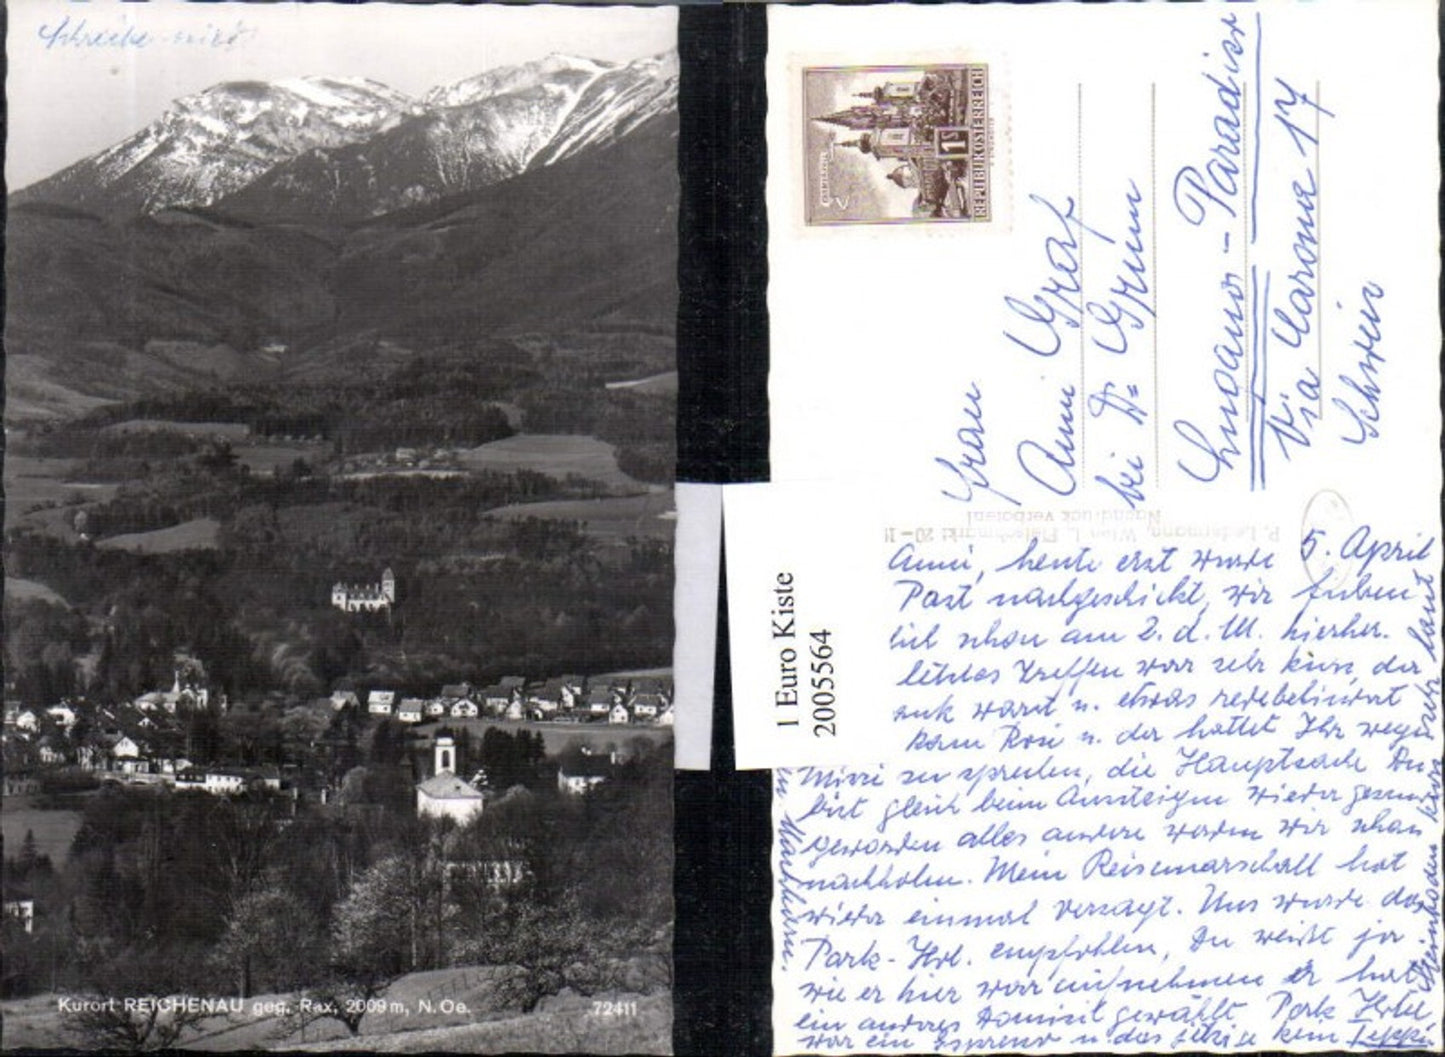 Schreibe
Kurort REICHENAU geg. Rax, 2009 m, N. Oe.
72411
1 Euro Kiste
2005564
REPUBLIK ÖSTERREICH
1 S
MARIAZELL
Frau
Anni Graf
bei Dr Grum
Lugano - Paradiso
Via Carona 17
Schweiz
P. Ledermann, Wien I., Fleischmarkt 20-
Nachdruck verboten!
5. April
Anni, heute erst wurde
Post nachgeschickt, wir fuhren
schon am 2. d. M. hierher.
letztes Treffen war sehr kurz, da
warst u. etwas
kam Rosi u. da hattet Ihr wegen
Mizzi zu sprechen, die Hauptsache Du
bist gleich beim Aussteigen wieder gesund
geworden alles andere werden wir schon
nachholen. Mein Reisemarschall hat
wieder einmal versagt. Uns wurde das
Park-Hot. empfohlen, Du weißt ja
wie er hier war er hat
ein anderes Domizil gewählt Park Hotel
war ein u. das kein